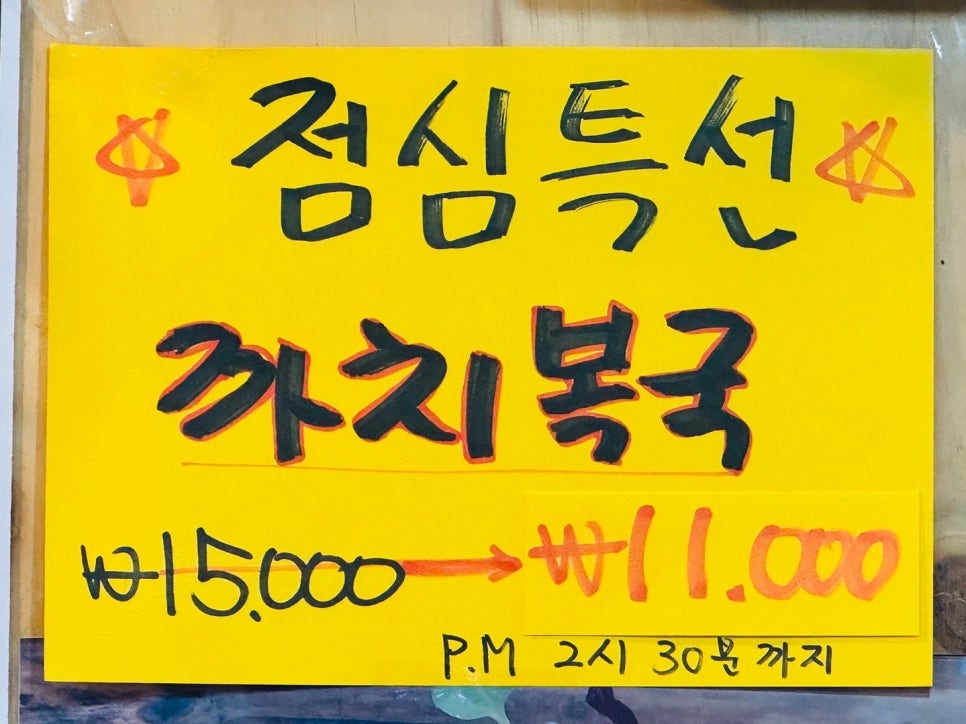 점심특선
까치복국
₩15.000 → ₩11.000
P.M 2시 30분까지